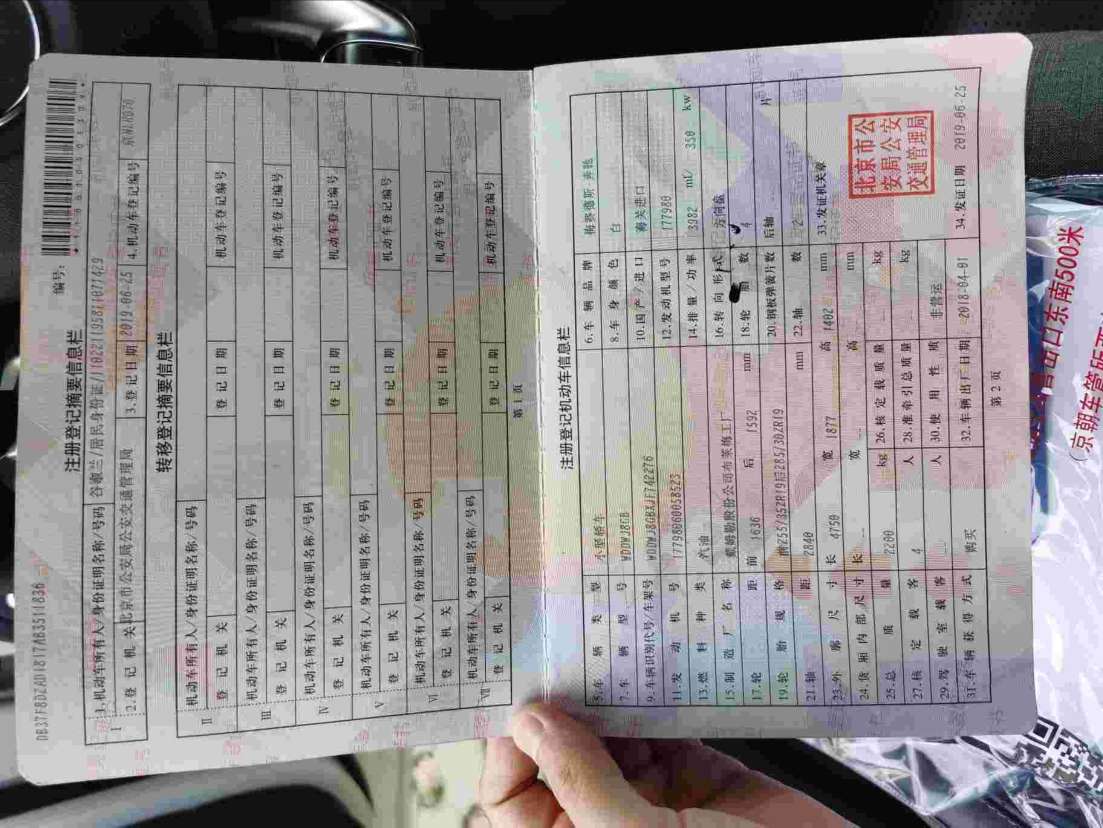 DB37F8DZAD1817AB3511836
编号:
注册登记摘要信息栏
Ⅰ 1.机动车所有人/身份证明名称/号码 谷顺兰/居民身份证/110221195811077429
2.登记机关 北京市公安局公安交通管理局 3.登记日期 2019-06-25 4.机动车登记编号
转移登记摘要信息栏
Ⅱ 机动车所有人/身份证明名称/号码
登记机关 登记日期 机动车登记编号
Ⅲ 机动车所有人/身份证明名称/号码
登记机关 登记日期 机动车登记编号
Ⅳ 机动车所有人/身份证明名称/号码
登记机关 登记日期 机动车登记编号
Ⅴ 机动车所有人/身份证明名称/号码
登记机关 登记日期 机动车登记编号
Ⅵ 机动车所有人/身份证明名称/号码
登记机关 登记日期 机动车登记编号
Ⅶ 机动车所有人/身份证明名称/号码
登记机关 登记日期 机动车登记编号
第1页
注册登记机动车信息栏
5.车辆类型 小型轿车 6.车辆品牌 梅赛德斯 奔驰
7.车辆型号 WDDWJ8GB 8.车身颜色 白
9.车辆识别代号/车架号 WDDWJ8GBXJF742276 10.国产/进口 海关进口
11.发动机号 17798060058623 12.发动机型号 177980
13.燃料种类 汽油 14.排量/功率 3982 ml/ 350 kw
15.制造厂名称 戴姆勒股份公司布莱梅工厂 16.转向形式 方向盘
17.轮距 前 1636 后 1592 mm 18.轮胎数 4
19.轮胎规格 前255/35ZR19后285/30ZR19 20.钢板弹簧片数 后轴 片
21.轴距 2840 mm 22.轴数 2
23.外廓尺寸 长 4750 宽 1877 高 1402 mm 33.发证机关章
24.货厢内部尺寸 长 宽 高 mm
25.总质量 2200 kg 26.核定载质量 kg
27.核定载客 4 人 28.准牵引总质量 kg
29.驾驶室载客 人 30.使用性质 非营运
31.车辆获得方式 购买 32.车辆出厂日期 2018-04-01 34.发证日期 2019-06-25
北京市公
安局公安
交通管理局
第2页
东南500米